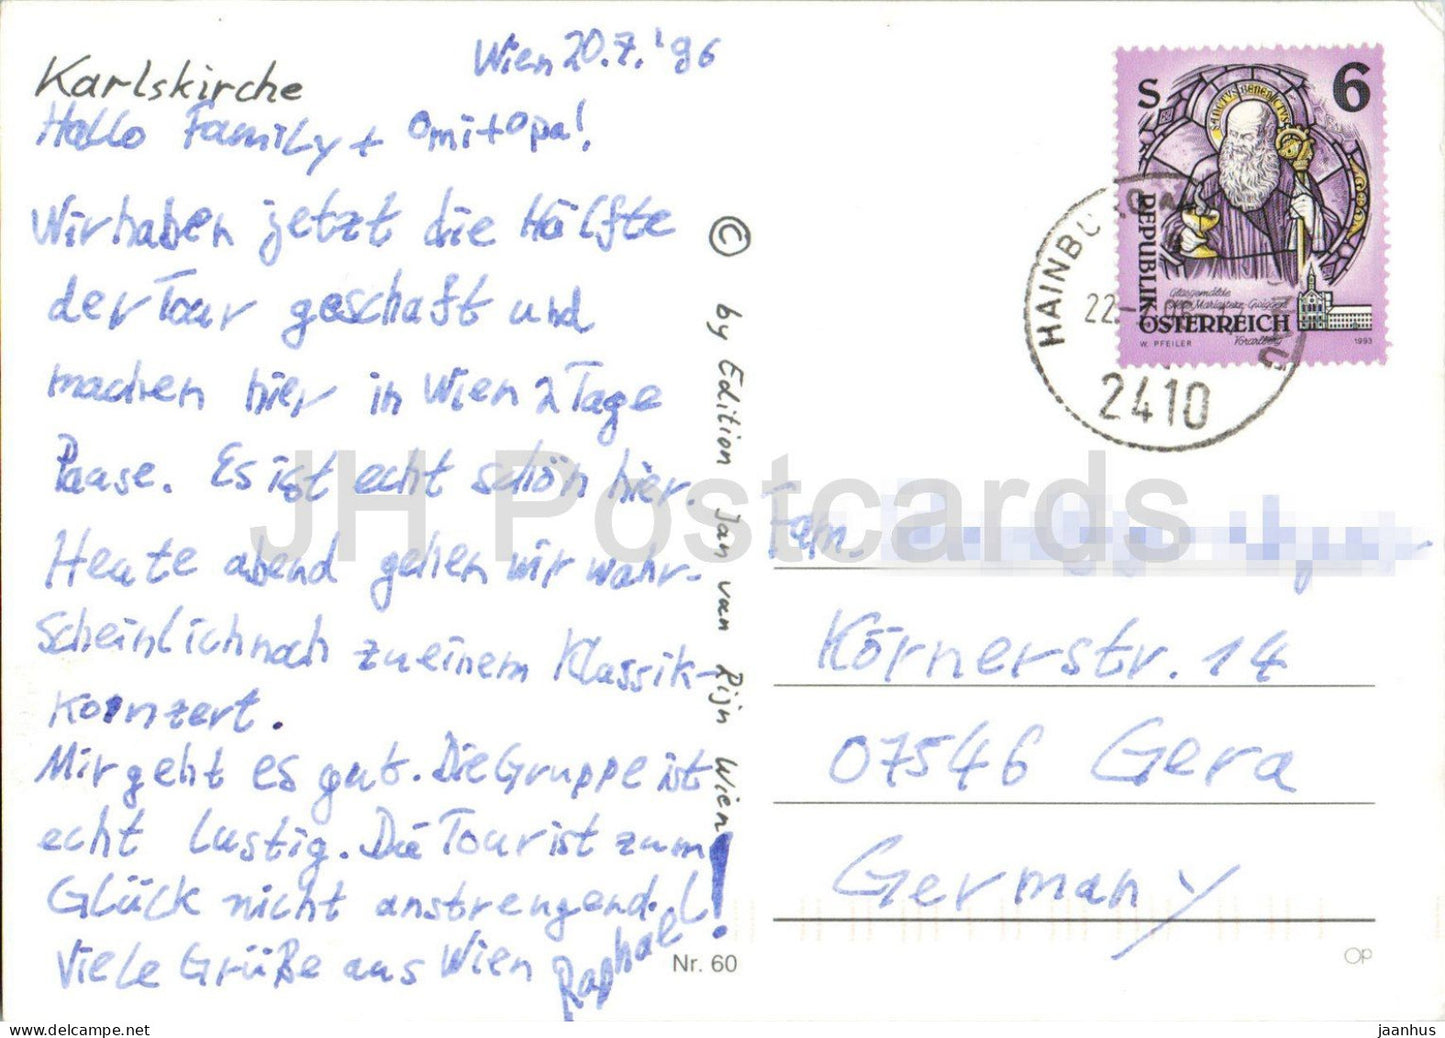 Karlskirche
Wien 20.7.'96
Hallo Family + omi+opa!
Wir haben jetzt die Hälfte
der Tour geschaft und
machen hier in Wien 2 Tage
Paase. Es ist echt schön hier.
Heute abend gehen wir wahr-
scheinlich noch zu einem Klassik-
Konzert.
Mir geht es gut. Die Gruppe ist
echt lustig. Die Tour ist zum
Glück nicht anstrengend.
Viele Grüße aus Wien Raphael
© by Edition Jan van Rijn Wien
Nr. 60
S 6
SANCTVS BENEDICTVS
REPUBLIK
Glasgemälde
Mariastern-Gwiggen
Vorarlberg
ÖSTERREICH
W. PFEILER 1993
HAINBURG
22.
2410
Fam.
Körnerstr. 14
07546 Gera
Germany
OP
JH Postcards
jaanhus
delcampe.net